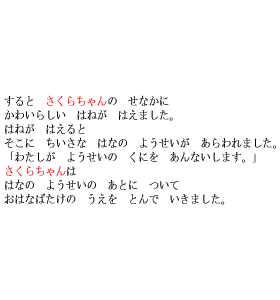 すると　さくらちゃんの　せなかに
かわいらしい　はねが　はえました。
はねが　はえると
そこに　ちいさな　はなの　ようせいが　あらわれました。
「わたしが　ようせいの　くにを　あんないします。」
さくらちゃんは
はなの　ようせいの　あとに　ついて
おはなばたけの　うえを　とんで　いきました。